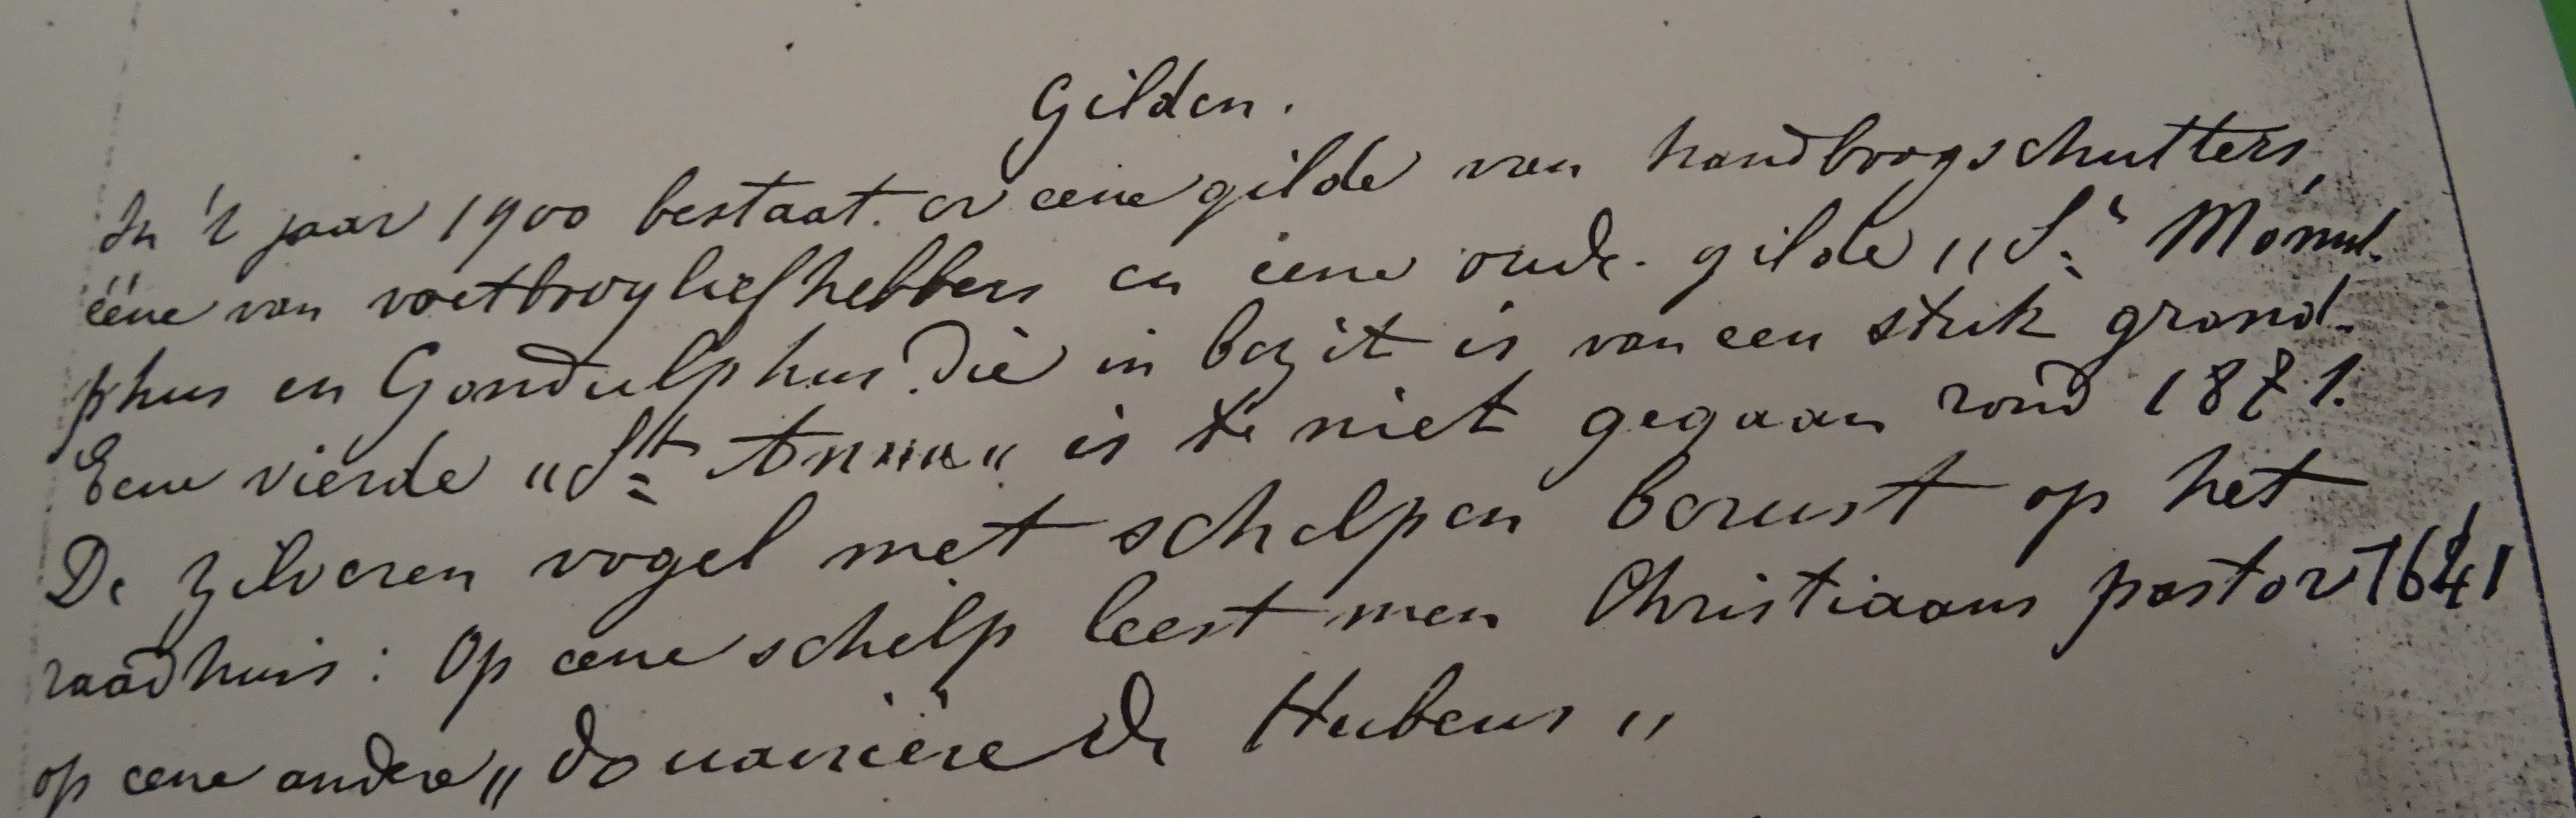 Gilden.
In 't jaar 1900 bestaat er eene gilde van handboogschutters,
ééne van voetboogliefhebbers en eene oude gilde „St Monul-
phus en Gondulphus. Die in bezit is van een stuk grond.
Eene vierde „St Anna„ is te niet gegaan rond 1871.
De zilveren vogel met schelpen berust op het
raadhuis: Op eene schelp leest men Christiaans pastor 1641
op eene andere „douairière de Hubens„